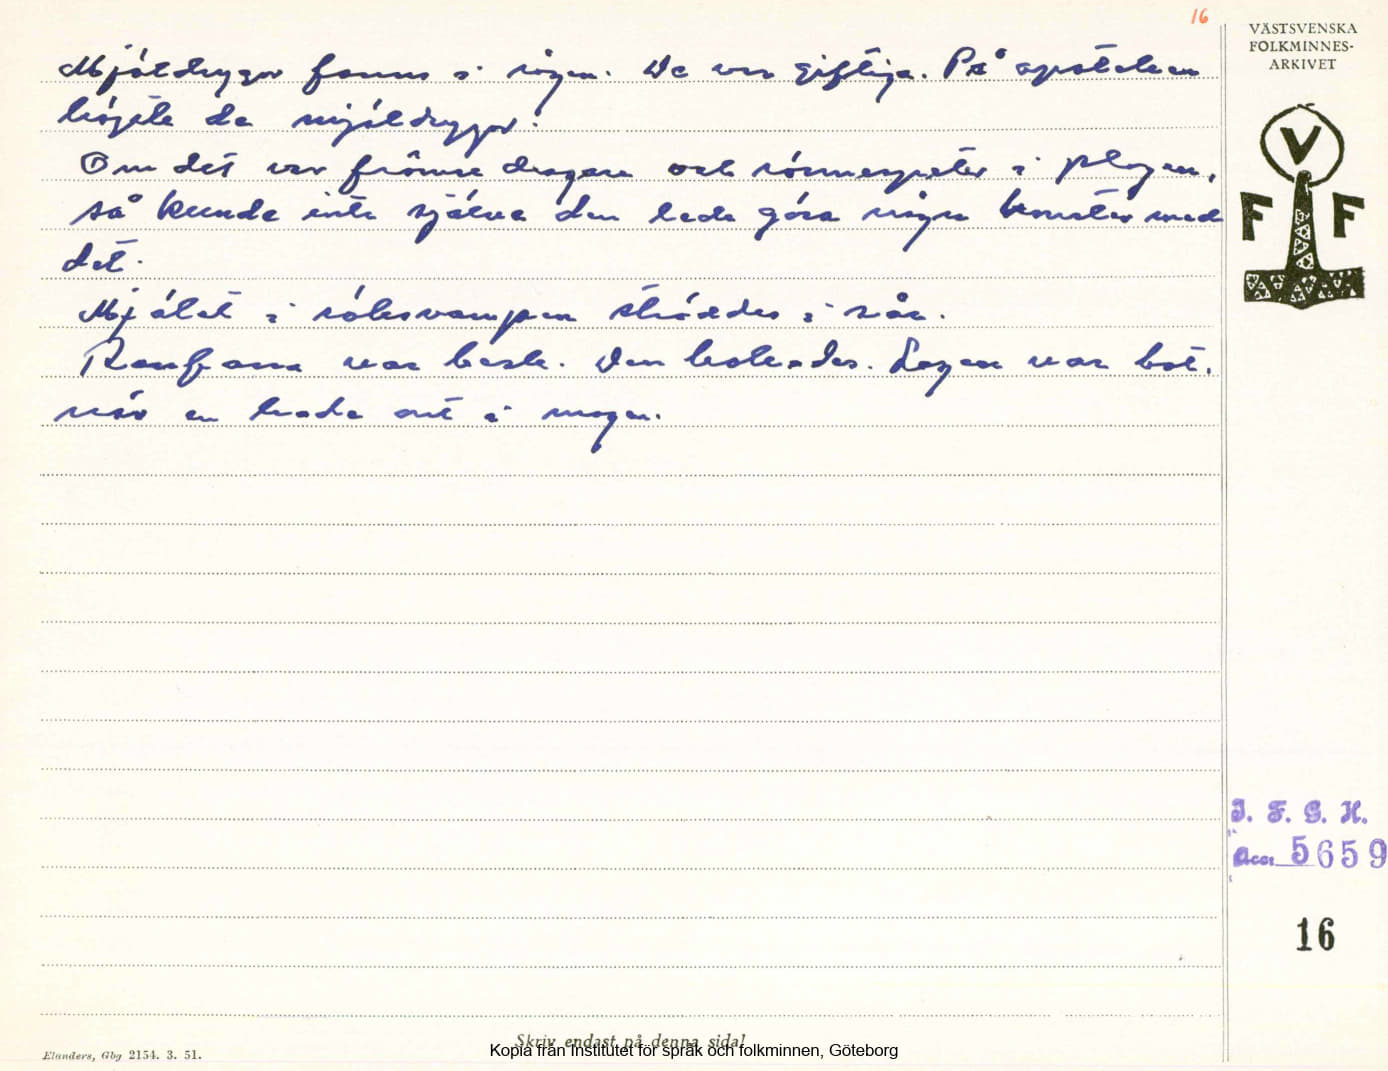 16
VÄSTSVENSKA
FOLKMINNES-
ARKIVET
V
F F
Mjöldrygor fanns i rågen. De var giftiga. På apoteken
köpte de mjöldrygor.
Om det var frömse dragare och rönnespieter i plogen,
så kunde inte själva den lede göra några konster med
det.
Mjölet i röksvampen ströddes i sår.
Renfana var besk. Den kokades. Lagen var bot,
när en hade ont i magen.
I. F. G. H.
Acc. 5659
16
Skriv endast på denna sida!
Elanders, Gbg 2154. 3. 51.
Kopia från Institutet för språk och folkminnen, Göteborg